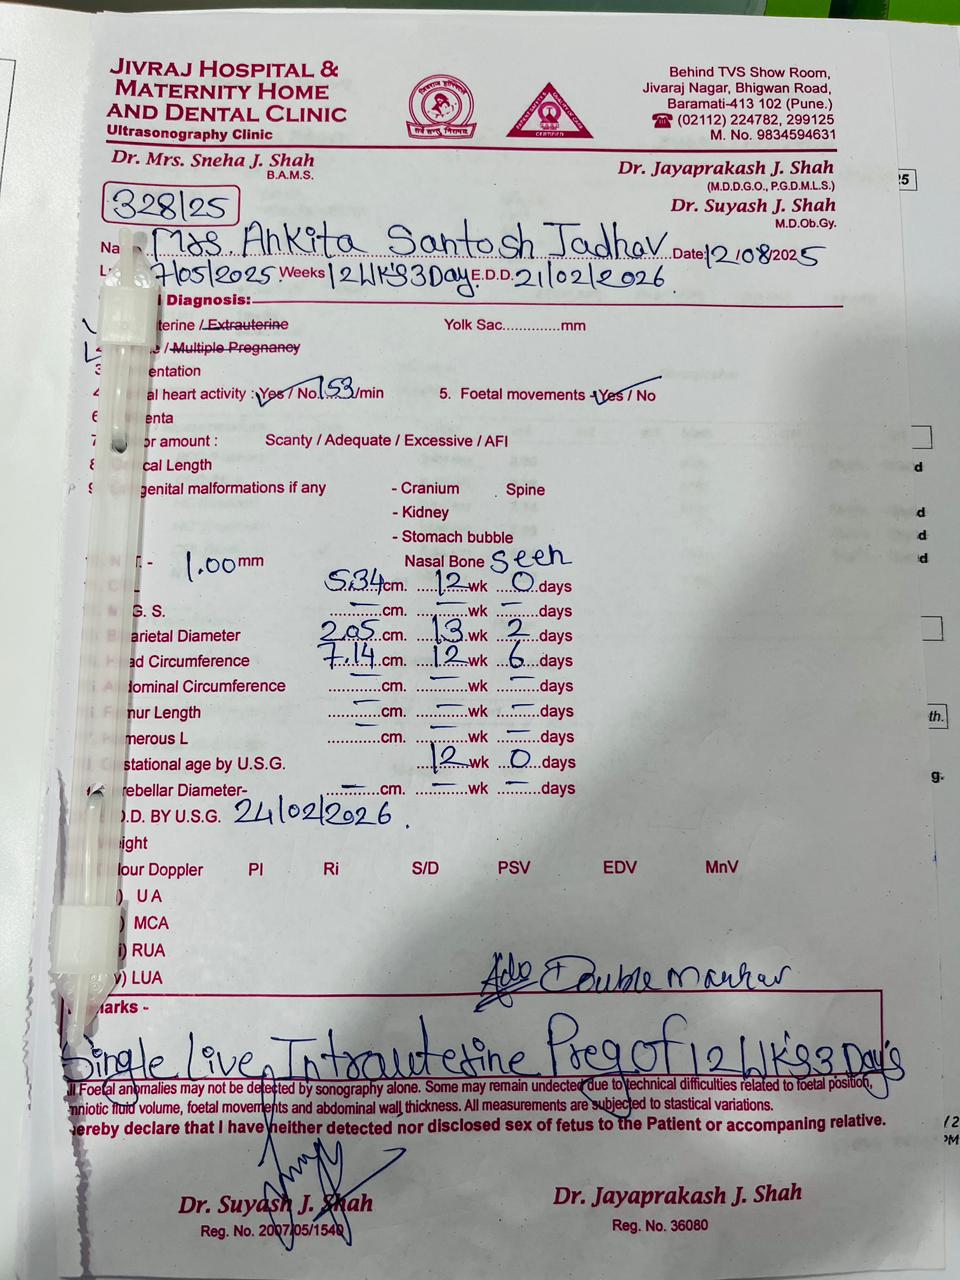 JIVRAJ HOSPITAL &
MATERNITY HOME
AND DENTAL CLINIC
Ultrasonography Clinic
Behind TVS Show Room,
Jivaraj Nagar, Bhigwan Road,
Baramati-413 102 (Pune.)
☎ (02112) 224782, 299125
M. No. 9834594631
CERTIFIED
Dr. Mrs. Sneha J. Shah
B.A.M.S.
Dr. Jayaprakash J. Shah
(M.D.D.G.O., P.G.D.M.L.S.)
Dr. Suyash J. Shah
M.D.Ob.Gy.
328/25
Na Mrs. Ankita Santosh Jadhav Date: 12/08/2025
L 7/05/2025 Weeks 12WKS3Day E.D.D. 21/02/2026
Diagnosis:
terine / Extrauterine Yolk Sac.............mm
/ Multiple Pregnancy
3 entation
4 al heart activity : Yes / No. 153/min 5. Foetal movements - Yes / No
6 enta
7 or amount : Scanty / Adequate / Excessive / AFI
8 cal Length
9 genital malformations if any - Cranium Spine
- Kidney
- Stomach bubble
T. - 1.00 mm Nasal Bone Seen
5.34 cm. 12 wk 0 days
G. S. — cm. — wk — days
arietal Diameter 2.05 cm. 13 wk 2 days
ad Circumference 7.14 cm. 12 wk 6 days
dominal Circumference — cm. — wk — days
mur Length — cm. — wk — days
merous L — cm. — wk — days
stational age by U.S.G. 12 wk 0 days
rebellar Diameter- — cm. — wk — days
.D. BY U.S.G. 24/02/2026.
eight
lour Doppler PI Ri S/D PSV EDV MnV
) UA
) MCA
i) RUA
v) LUA
Adv Double Marker
arks -
Single Live Intrauterine Preg Of 12WKS3Day's
ll Foetal anomalies may not be detected by sonography alone. Some may remain undected due to technical difficulties related to foetal position,
mniotic fluid volume, foetal movements and abdominal wall thickness. All measurements are subjected to stastical variations.
ereby declare that I have neither detected nor disclosed sex of fetus to the Patient or accompaning relative.
Dr. Suyash J. Shah
Reg. No. 2007/05/1540
Dr. Jayaprakash J. Shah
Reg. No. 36080